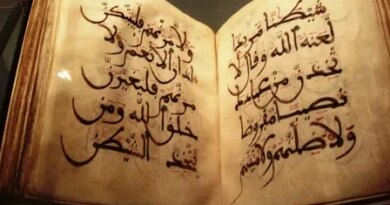 شيطنا مريدا
لعنه الله وقال لا
تخذن من عبادك
نصيبا مفروضا
ولاضلنهم ولامنينهم
ولامرنهم فليبتكن
اذان الانعم ولا
مرنهم فليغيرن
خلق الله ومن
يتخذ الشيطن